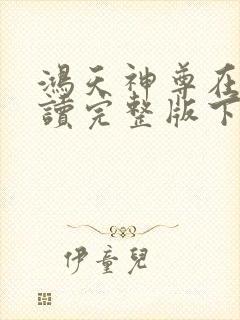 鴻天神尊在
讀完整版下
伊童兒